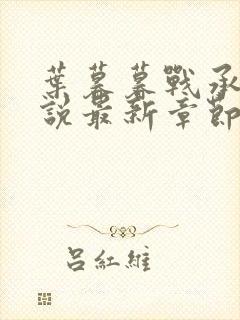 葉暮暮戰承
說最新章節
呂紅維